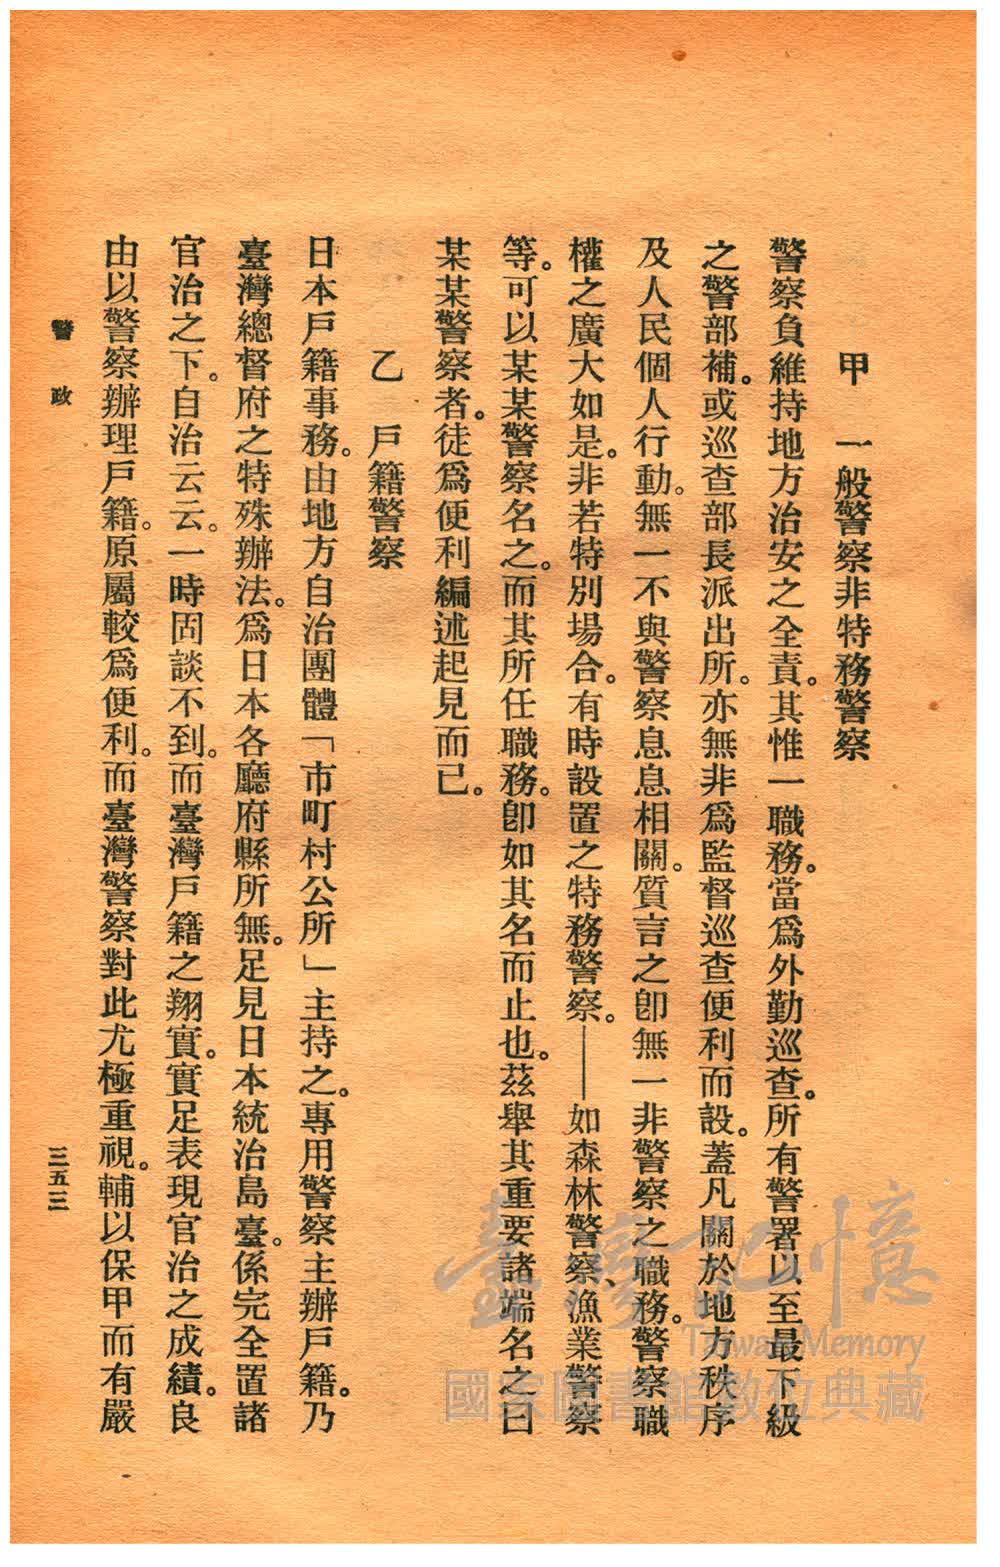 甲　一般警察非特務警察
警察負維持地方治安之全責。其惟一職務。當爲外勤巡查。所有警署以至最下級
之警部補。或巡查部長派出所。亦無非爲監督巡查便利而設。蓋凡關於地方秩序
及人民個人行動。無一不與警察息息相關。質言之卽無一非警察之職務。警察職
權之廣大如是。非若特別場合。有時設置之特務警察。——如森林警察、漁業警察
等。可以某某警察名之。而其所任職務。卽如其名而止也。茲舉其重要諸端名之曰
某某警察者。徒爲便利編述起見而已。
乙　戶籍警察
日本戶籍事務。由地方自治團體「市町村公所」主持之。專用警察主辦戶籍。乃
臺灣總督府之特殊辦法。爲日本各廳府縣所無。足見日本統治島臺。係完全置諸
官治之下。自治云云。一時固談不到。而臺灣戶籍之翔實。實足表現官治之成績。良
由以警察辦理戶籍。原屬較爲便利。而臺灣警察對此尤極重視。輔以保甲而有嚴
警政
三五三
臺灣記憶
Taiwan Memory
國家圖書館數位典藏